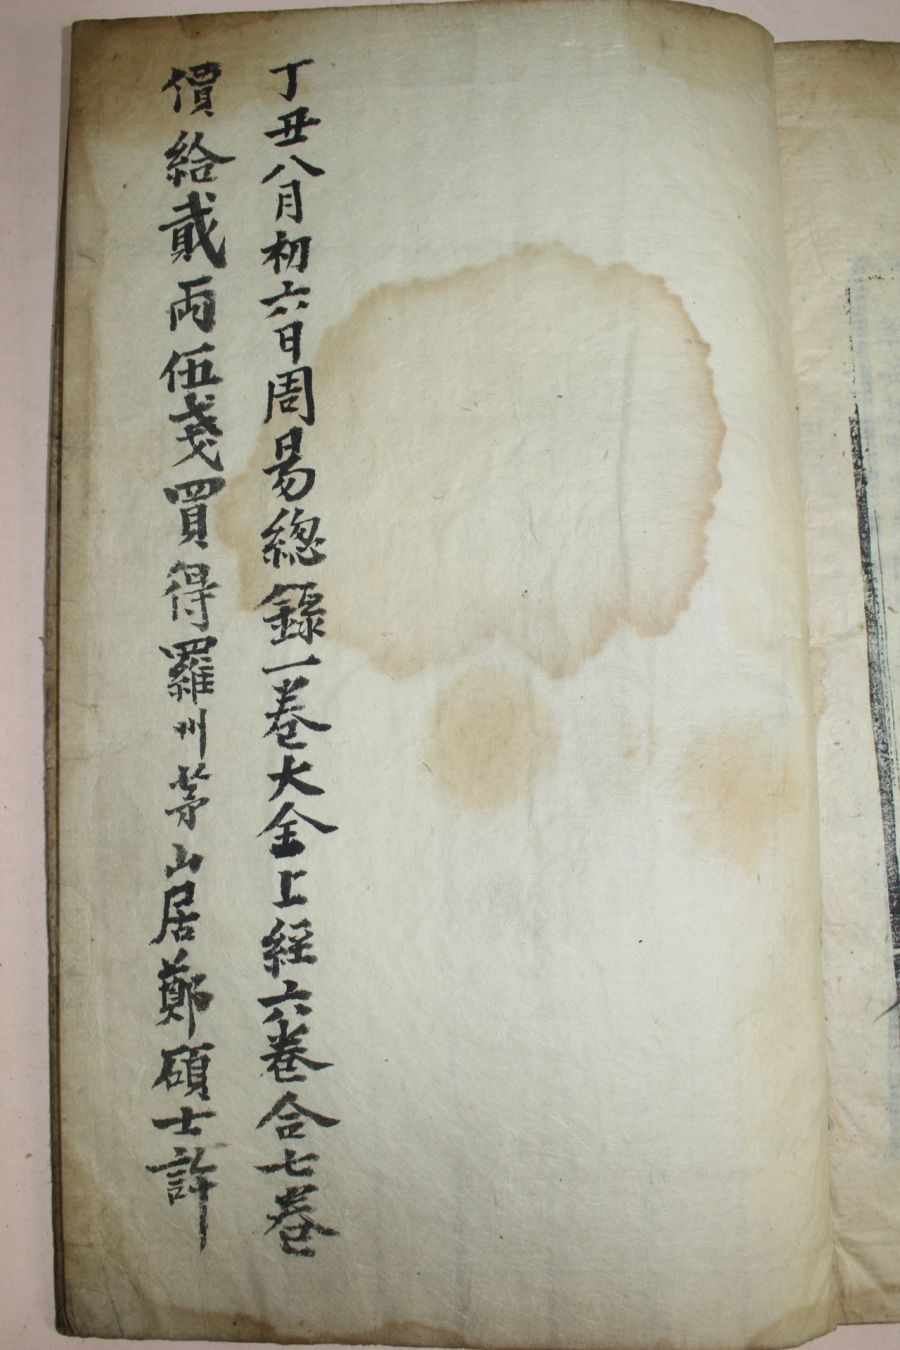 丁丑八月初六日周易總錄一卷大全上經六卷合七卷
價給貳兩伍戔買得羅州茅山居鄭碩士許